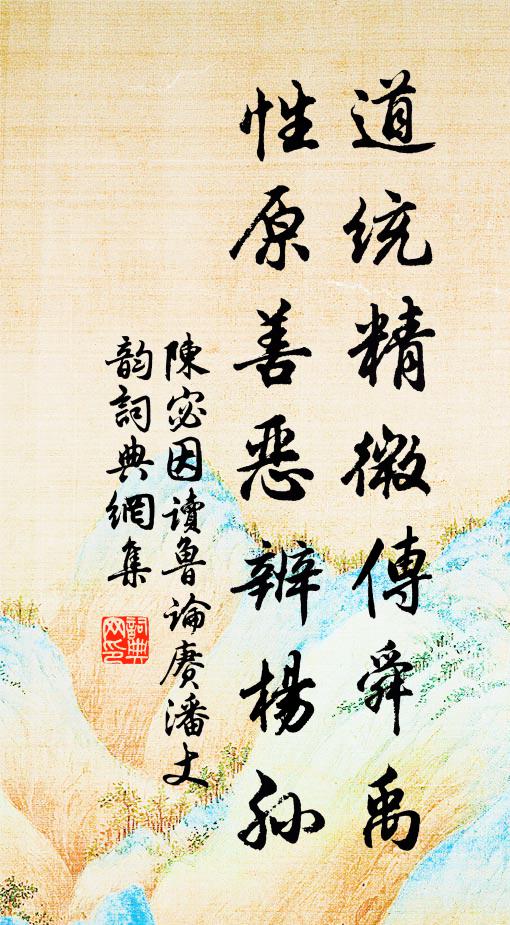 道統精微傳舜禹
性原善惡辨楊孫
陳宓因讀魯論賡潘丈
韵詞典網集
詞典
网印